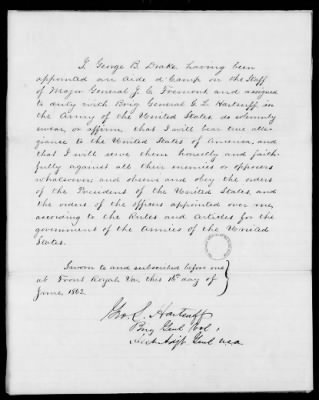 I, George B. Drake having been
appointed an Aide d'Camp on the Staff
of Major General J. C. Fremont and assigned
to duty with Brig General G. L. Hartsuff, in
the Army of the United States do solemnly
swear, or affirm, that I will bear true alle-
giance to the United States of America, and
that I will serve them honestly and faith-
fully against all their enemies or opposers
whatsoever; and observe and obey the orders
of the President of the United States, and
the orders of the officers appointed over me,
according to the Rules and Articles for the
government of the Armies of the United
States.
Sworn to and subscribed before me
at Front Royal Va. this day of
June, 1862.
Geo. L. Hartsuff
Brig Genl Vol,
Asst Adjt Genl USA